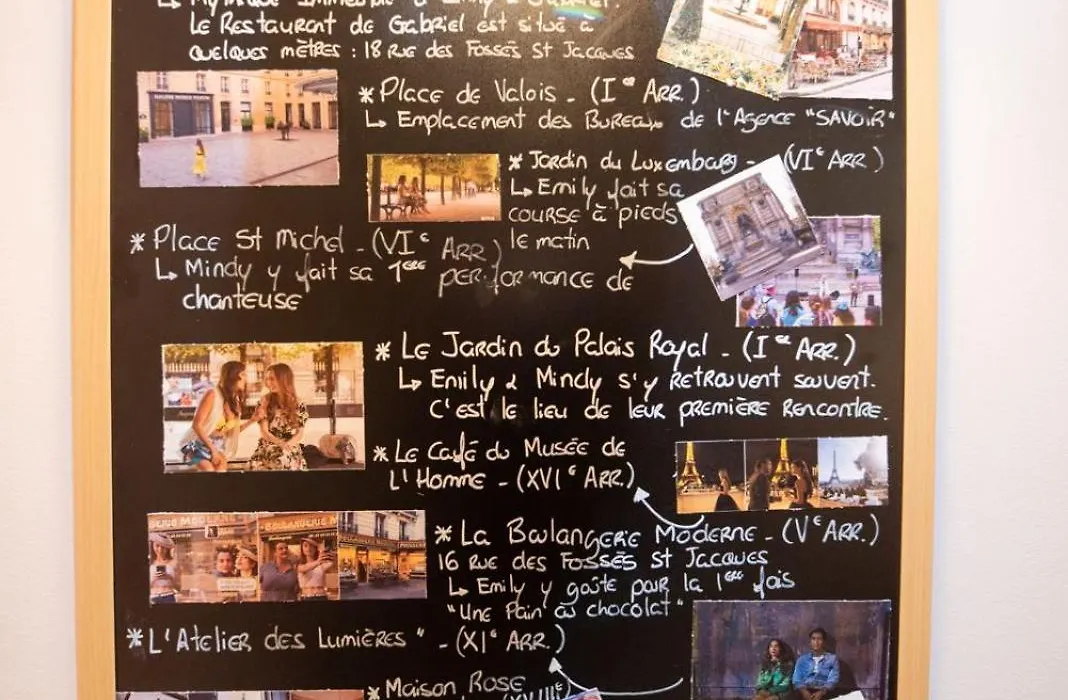 ↳ Mythique Immeuble d'Emily & Gabriel.
Le Restaurant de Gabriel est situé à
quelques mètres : 18 rue des Fossés St Jacques
* Place de Valois - (Ier Arr.)
↳ Emplacement des Bureaux de l'Agence "SAVOIR"
* Jardin du Luxembourg - (VIe Arr)
↳ Emily fait sa
course à pieds
le matin
* Place St Michel - (VIe Arr)
↳ Mindy y fait sa 1ère performance de
chanteuse
* Le Jardin du Palais Royal - (Ier Arr.)
↳ Emily & Mindy s'y retrouvent souvent.
C'est le lieu de leur première rencontre.
* Le Café du Musée de
L'Homme - (XVIe Arr.)
BOULANGERIE MODERNE
BOULANGERIE M
* La Boulangerie Moderne - (Ve Arr.)
16 rue des Fossés St Jacques
↳ Emily y goûte pour la 1ère fois
"Une Pain au chocolat"
* L'Atelier des Lumières" - (XIe Arr.)
* Maison Rose
(XVIIIe